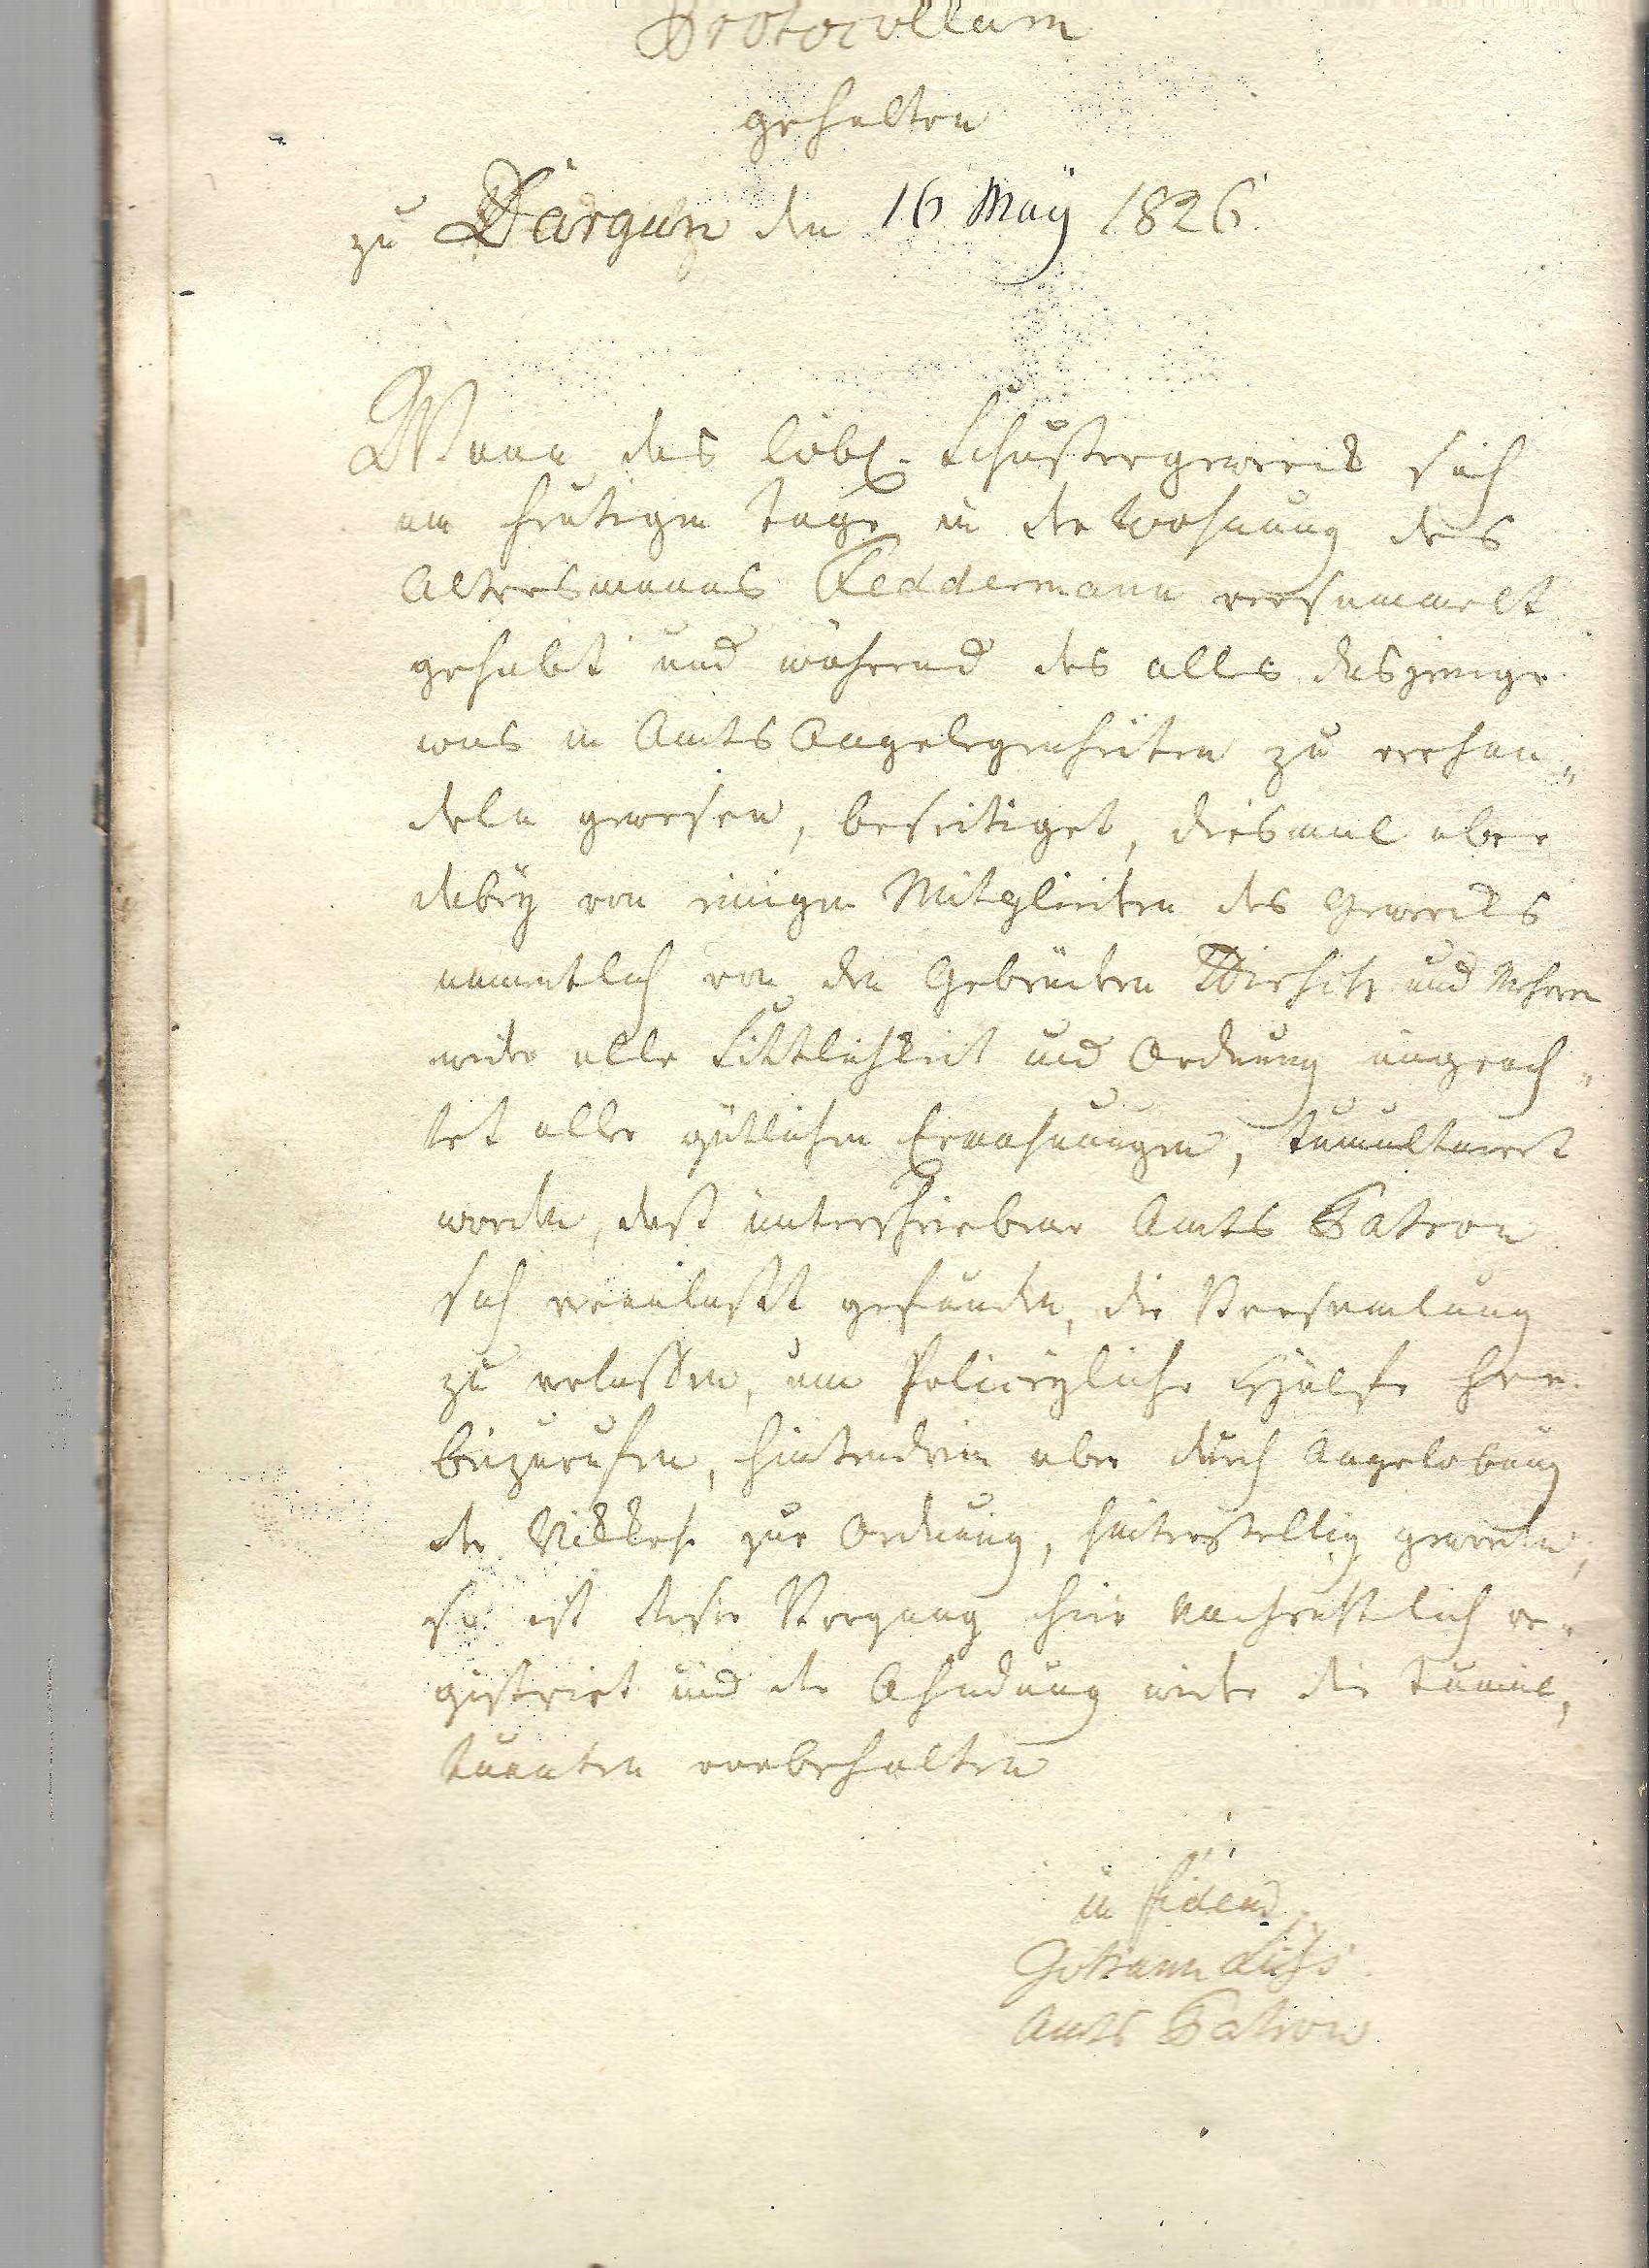 Protocollum
gehalten
zu Dargun den 16 May 1826.
Wenn das löbl. Schustergewerk sich
am heutigen Tage in der Wohnung des
Altersmanns Reddermann versammelt
gehabt und während des alles dasjenige
was in Amts Angelegenheiten zu verhan„
deln gewesen, beseitiget, diesmal aber
dabey von einigen Mitgliedern des Gewerks
namentlich von den Gebrüdern und
wider alle Sittlichkeit und Ordnung ungeach„
tet aller gütlichen Ermahnungen, tumultuirt
worden, daß unterschriebener Amts Patron
sich veranlaßt gefunden, die Versamlung
zu verlassen, um Policeyliche Hülfe her„
beizurufen, hintendrein aber durch Angelobung
der zur Ordnung, hinterstellig geworden,
so ist dieser Vorgang hier nachrichtlich re„
gistrirt und die Ahndung wider die Tumul„
tuanten vorbehalten
in fidem
Johann
Amts Patron